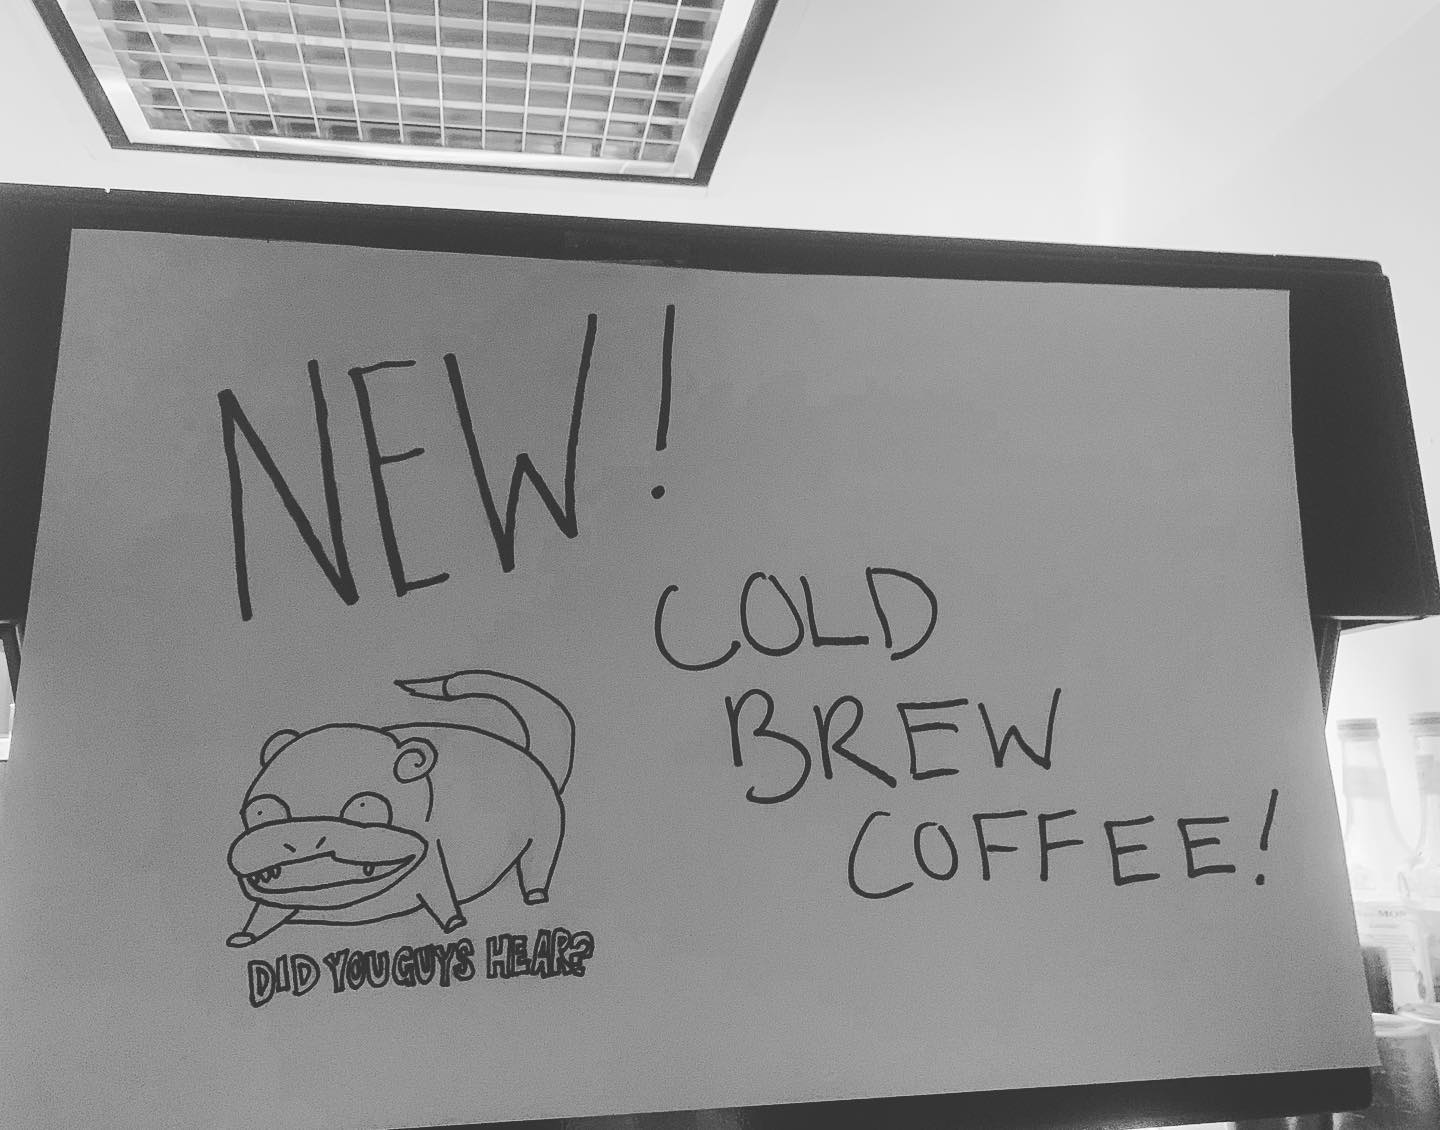 NEW!
COLD
BREW
COFFEE!
DID YOU GUYS HEAR?